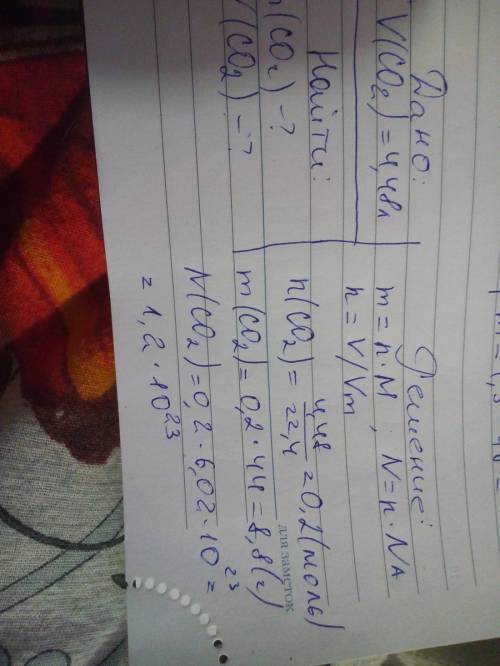 Дано:
V(CO₂) = 4,48л
Найти:
m(CO₂) - ?
N(CO₂) - ?
Решение:
m = n · M ; N = n · NA
n = V/Vm
n(CO₂) = 4,48/22,4 = 0,2(моль)
m(CO₂) = 0,2 · 44 = 8,8(г)
N(CO₂) = 0,2 · 6,02 · 10²³ =
= 1,2 · 10²³
для заметок